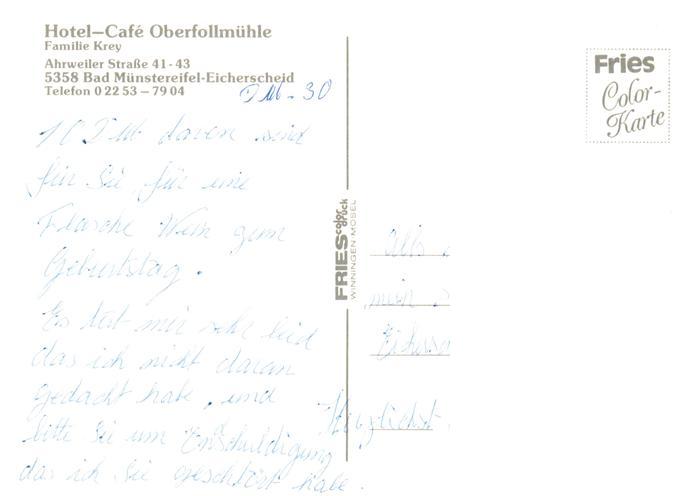 Hotel-Café Oberfollmühle
Familie Krey
Ahrweiler Straße 41-43
5358 Bad Münstereifel-Eicherscheid
Telefon 0 22 53 – 79 04
DM - 30
10 DM davon sind
für Sie für eine
Flasche Wein zum
Geburtstag.
Es tut mir sehr leid
das ich nicht daran
gedacht habe, und
bitte Sie um Entschuldigung
das ich Sie geschtört habe.
FRIES color druck
WINNINGEN-MOSEL
Fries
Color-
Karte
Alls
mein
Herzlichst